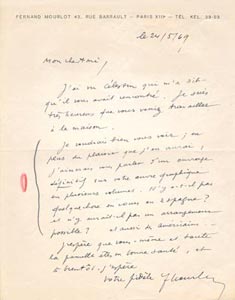 FERNAND MOURLOT 43, RUE BARRAULT - PARIS XIIIe - TÉL. KEL. 39-23
le 24/5/69
Mon cher Miró,
J'ai vu Célestin qui m'a dit
qu'il vous avait rencontré. Je suis
très heureux que vous veniez travailler
à la maison.
Je voudrais bien vous voir ; en
plus du plaisir que j'en aurai,
j'aimerais vous parler d'un ouvrage
définitif sur votre œuvre graphique
en plusieurs volumes. Il y a-t-il pas
quelque chose en vous en Espagne ?
et n'y aurait-il pas un arrangement
possible ? et aussi de américain
J'espère que vous-même et toute
la famille êtes en bonne santé, et
à bientôt j'espère
votre fidèle